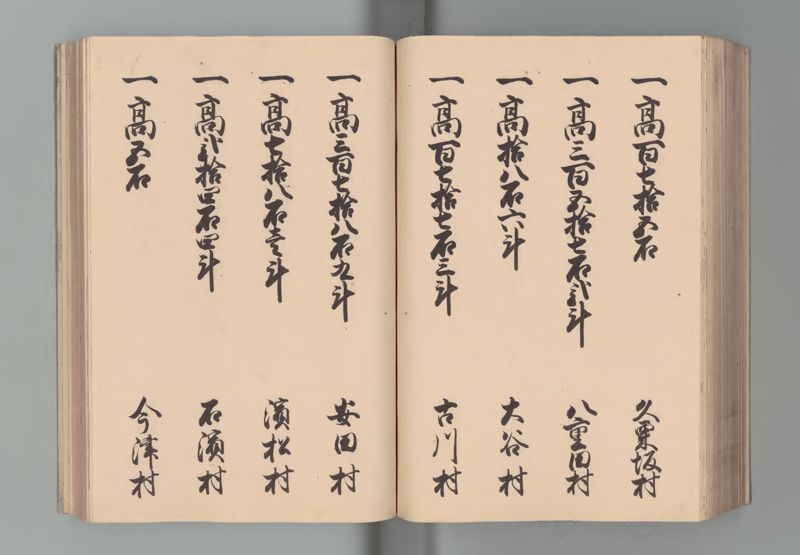 一高百七拾五石 久栗坂村
一高三百五拾七石弐斗 八重田村
一高拾八石六斗 大谷村
一高百七拾七石三斗 古川村
一高三百七拾八石九斗 安田村
一高七拾八石壱斗 濱松村
一高弐拾四石四斗 石濱村
一高五石 今津村